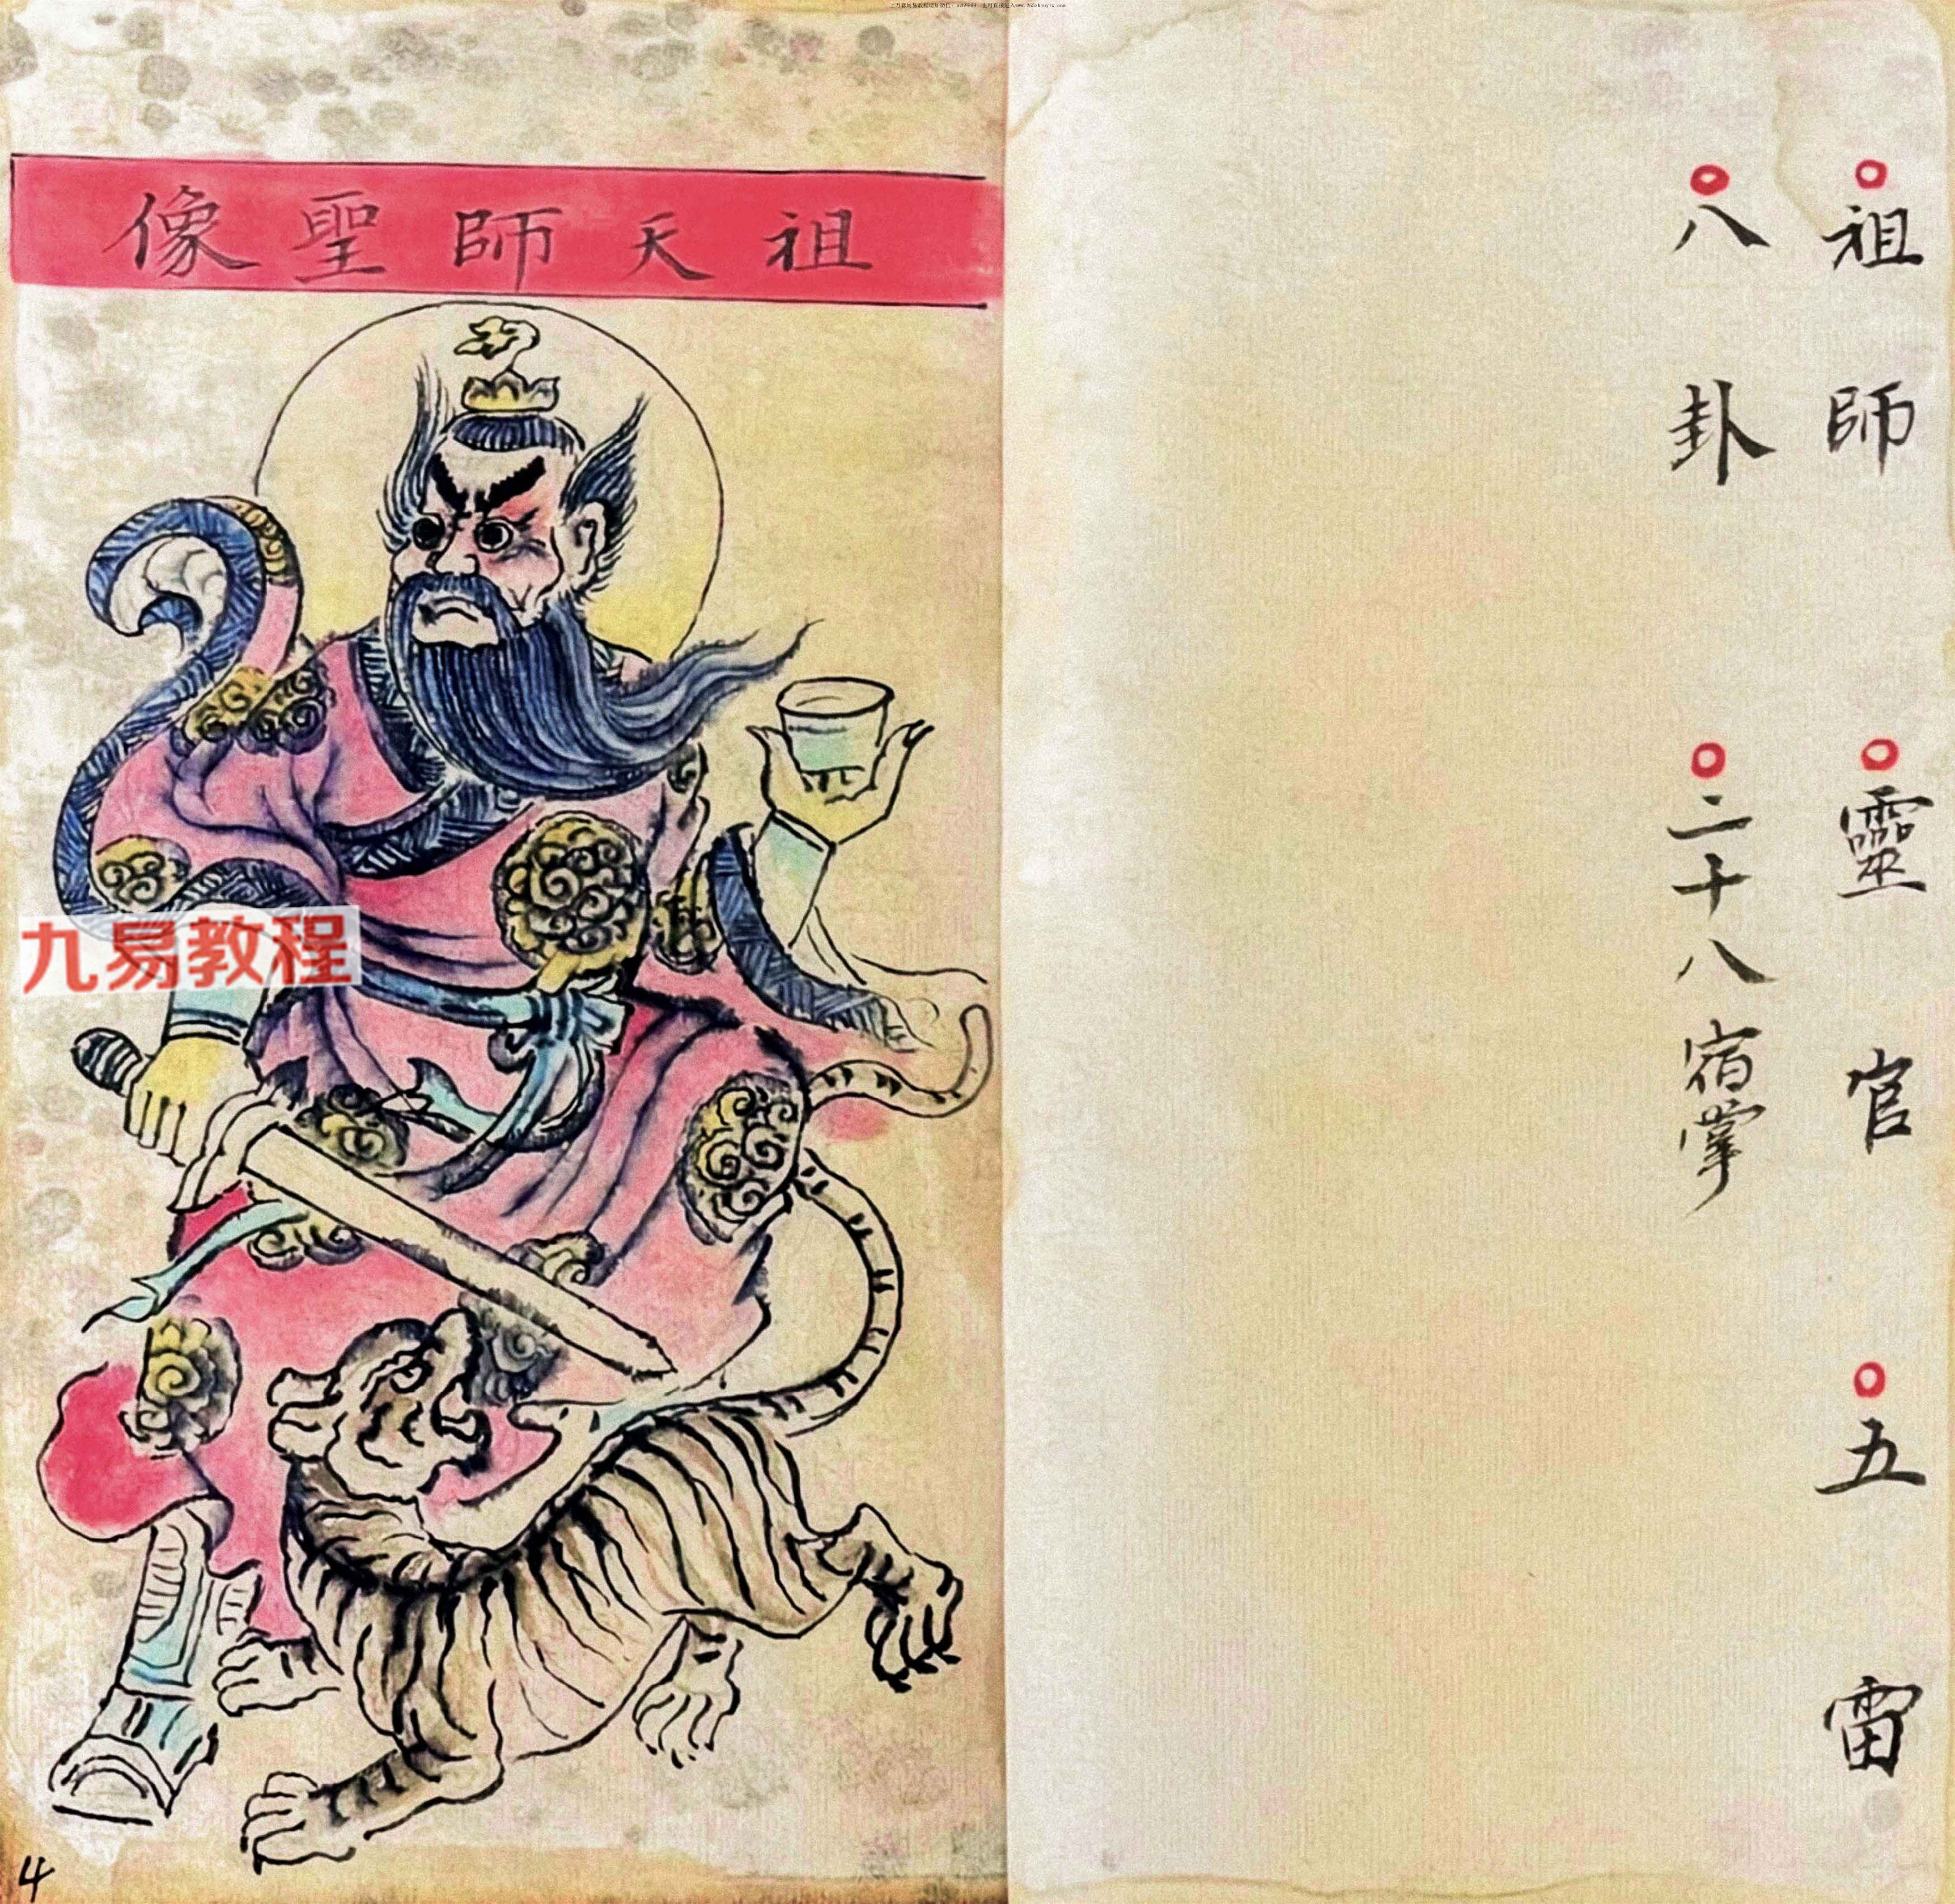 祖師 靈官 五雷
八卦 二十八宿掌
祖天師聖像
九易教程
4